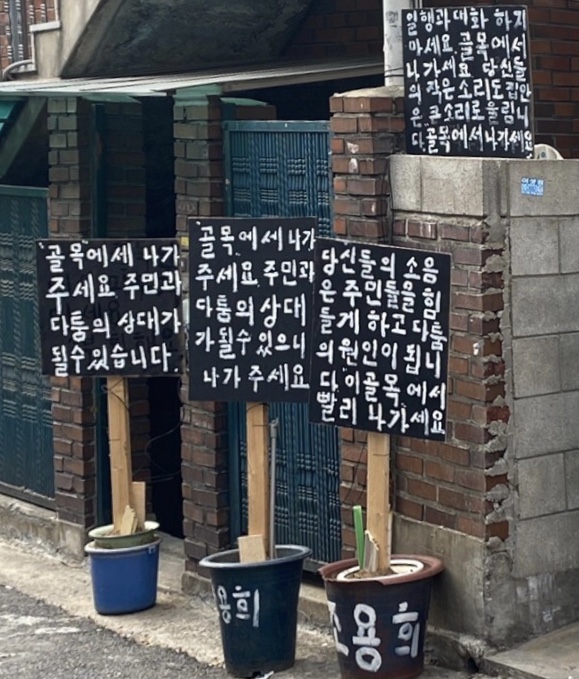 일행과 대화 하지
마세요. 골목 에서
나가세요 당신들
의 작은 소리도 집안
은 큰소리로 울립니
다. 골목에서 나가세요
"골목"에세 나가
주세요 주민과
다툼의 상대가
될수 있습니다.
"골목"에세 나가
주세요. 주민과
다툼의 상대
가 될수 있으니
나가 주세요
당신들의 소음
은 주민들을 힘
들게 하고 다툼
의 원인이 됩니
다. 이골목 에서
빨리 나가세요
용희
조용히